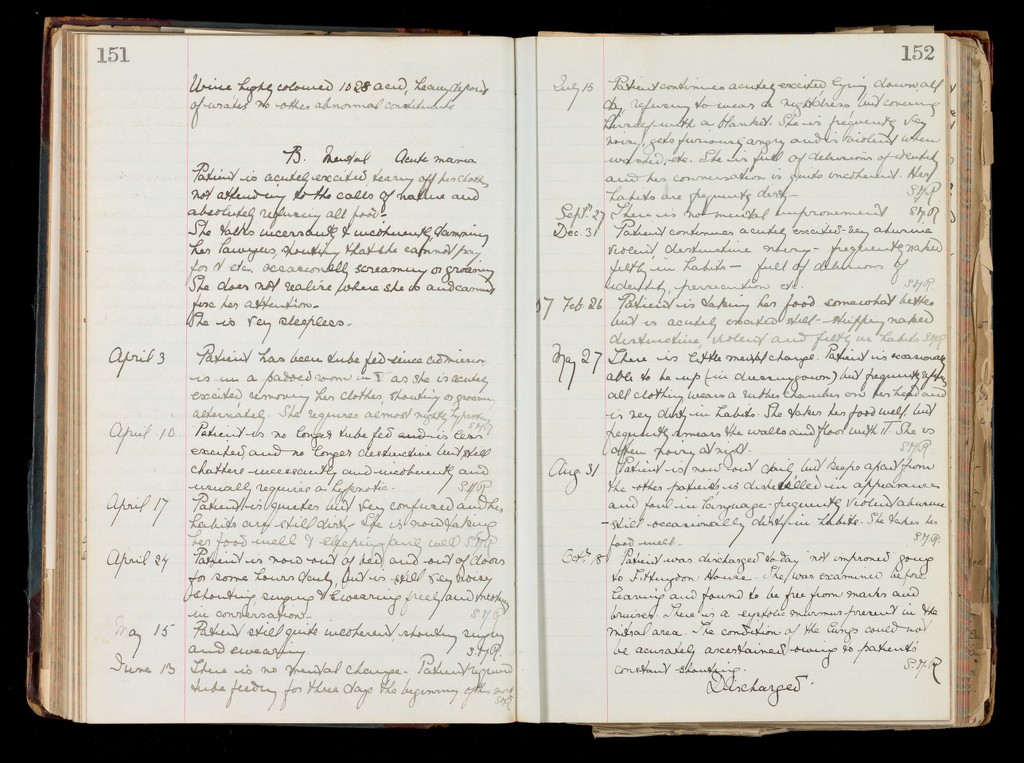 151
Urine highly coloured 1028 acid, heavy deposit
of urates no other abnormal constituents
B. Mental Acute mania
Patient is acutely excited, tearing off her clothes
not attending to the calls of nature and
absolutely refusing all food—
She talks incessantly & incoherently, damning
her lawyers, shouting that she cannot pay
for it etc, occasionally screaming or groaning
She does not realize where she is and cannot
fix her attention—
She is very sleepless.
April 3 Patient has been tube fed since admission
is in a padded room in as she is acutely
excited removing her clothes, shouting or groaning
alternately. She requires almost nightly hypnotics
April 10 Patient is no longer tube fed and is less
excited and no longer destructive but still
chatters incessantly and incoherently and
usually requires a hypnotic.
April 17 Patient is quieter but very confused and her
habits are still dirty. She is now taking
her food well & sleeping fairly well
April 24 Patient is now out of bed and out of doors
for some hours daily, but is still very noisy
shouting, singing & swearing freely and
in conversation—
May 15 Patient still quite incoherent, shouting singing
and swearing.
June 13 There is no mental change. Patient required
tube feeding for three days the beginning of this month
152
July 15 Patient continues acutely excited lying down, all
day, refusing to wear a nightdress but covering
herself with a blanket. She is frequently very
noisy, gets furiously angry and is violent when
washed, etc. She is full of delusions of identity
and her conversation is quite incoherent. Her
habits are frequently dirty—
Sept. 27 There is no mental improvement
Dec. 31 Patient continues acutely excited—very abusive
violent, destructive noisy— frequently naked
filthy in habits— full of delusions of
identity, persecution etc.
07 Feb 26 Patient is taking her food somewhat better
but is acutely excited still— stripping naked
destructive, violent and filthy in habits
May 27 There is little mental change. Patient is occasionally
able to be up (in dressing gown) but frequently
all clothing wears a rubber chamber on her head and
is very dirty in habits. She takes her food well, but
frequently smears the walls and floor with it. She is
often noisy at night.
Aug 31 Patient is now out daily, but keeps apart from
the other patients, is dishevelled in appearance
and foul in language— frequently violent abusive
— still occasionally dirty in habits. She takes her
food well.
Oct. 18 Patient was discharged today "not improved" going
to House. She was examined before
leaving and found to be free from marks and
bruises. There is a systolic murmur present in the
mitral area. The condition of the lungs could not
be accurately ascertained owing to patient's
constant shouting.
Discharged.